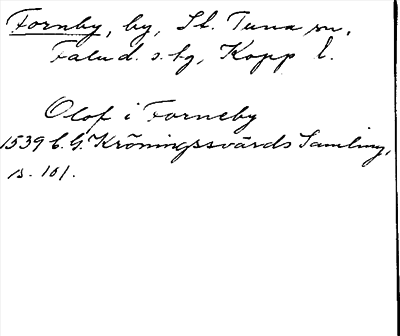 Fornby, by, St. Tuna sn,
Falu d. s. bg, Kopp l.
Olof i Forneby
1539 C. G. Kröningssvärds Samling,
s. 101.